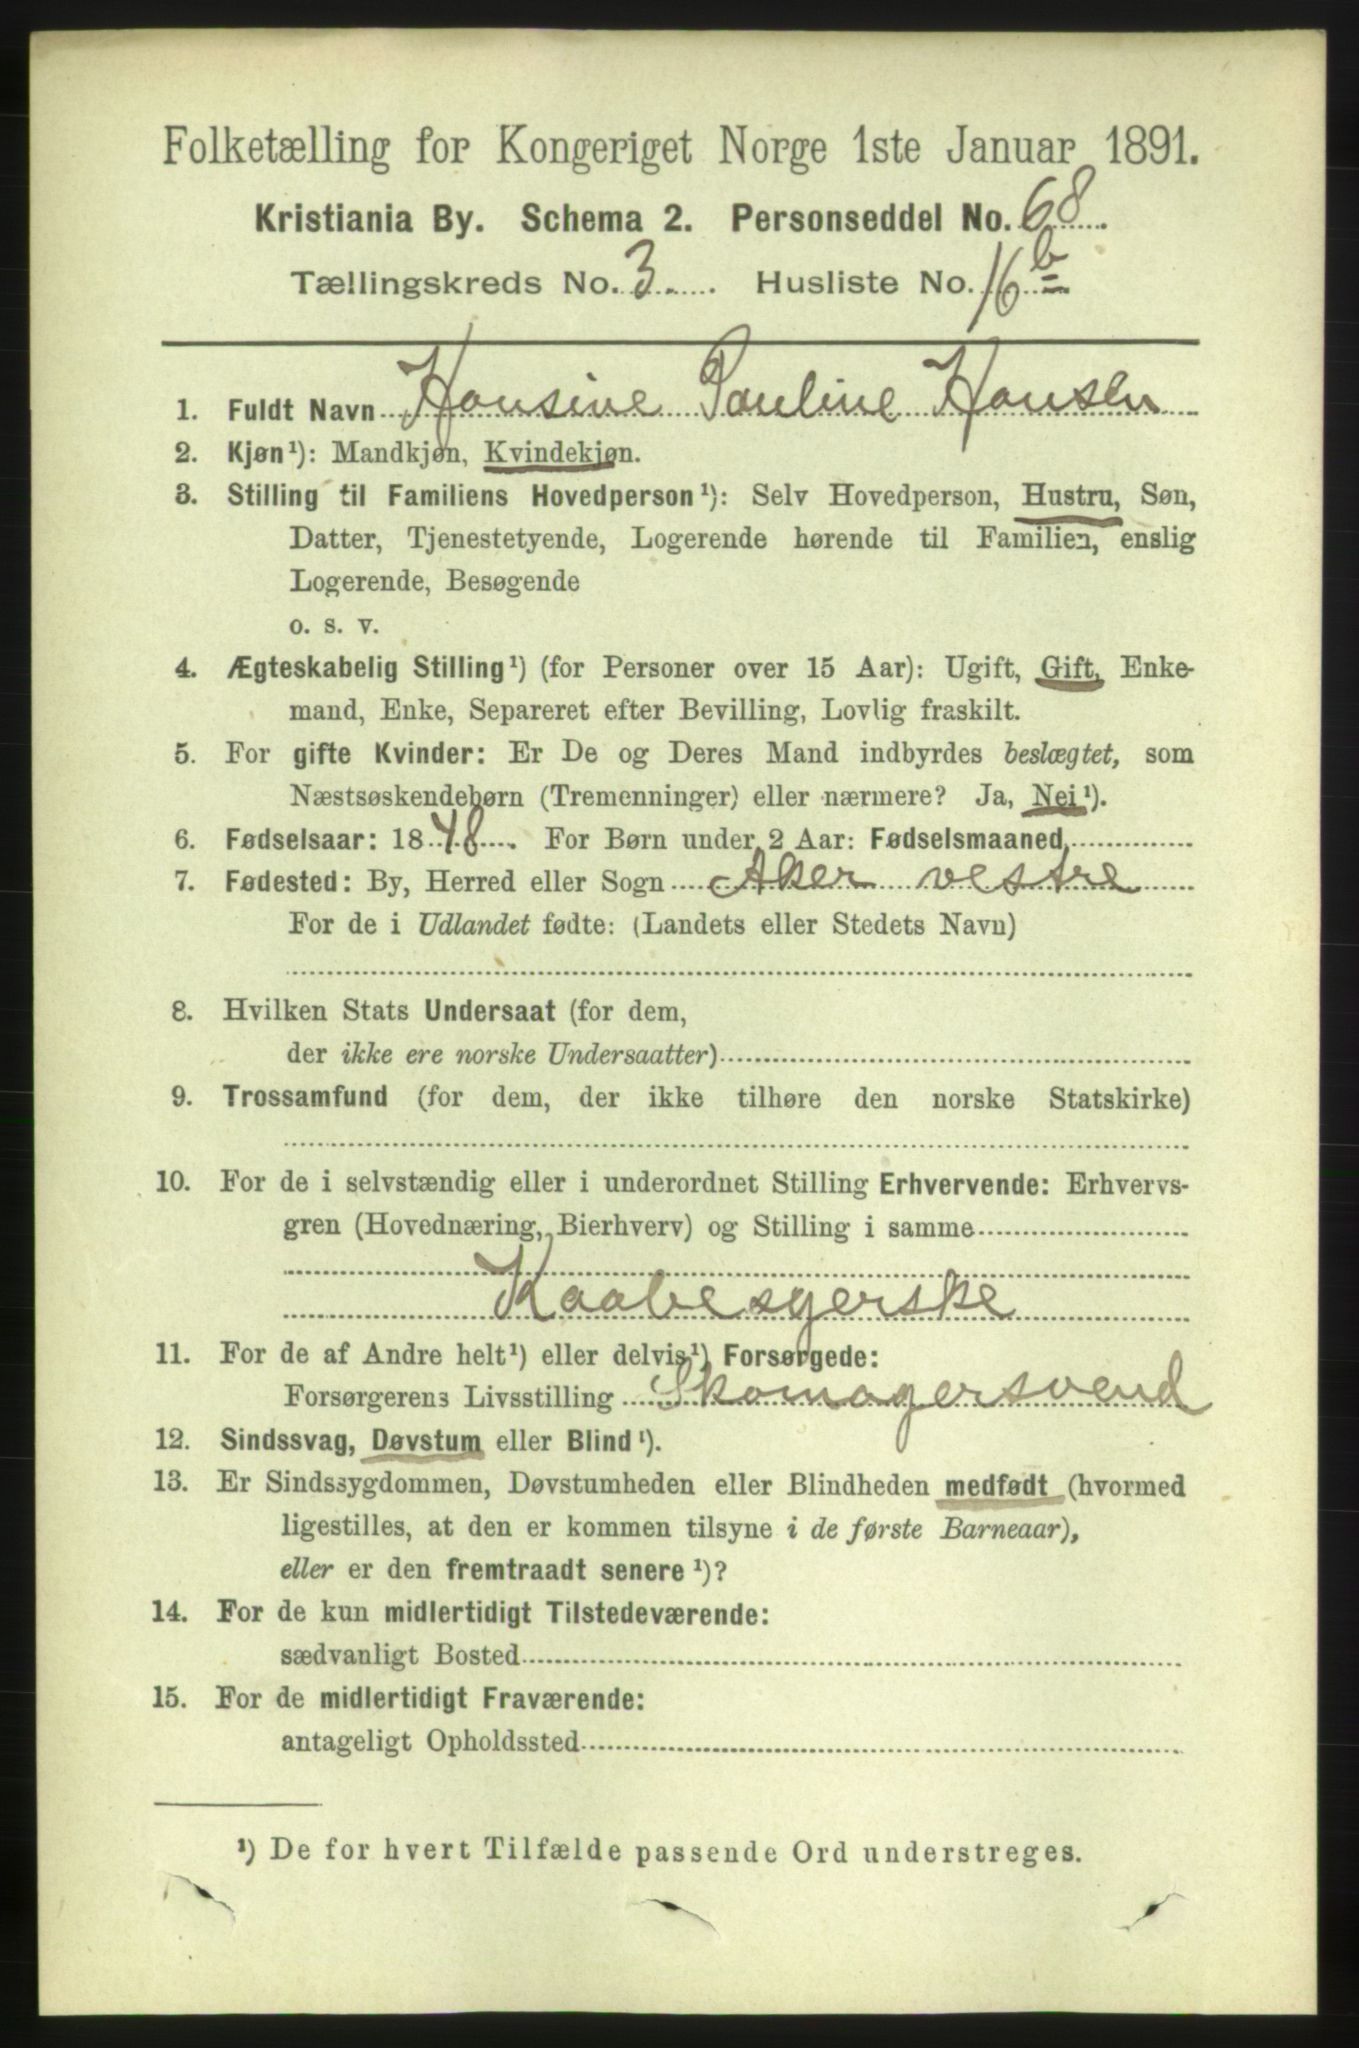 Folketælling for Kongeriget Norge 1ste Januar 1891.
Kristiania By. Schema 2. Personseddel No. 68
Tællingskreds No. 3. Husliste No. 16b
1. Fuldt Navn Hansine Pauline Hansen
2. Kjøn¹): Mandkjøn, Kvindekjøn.
3. Stilling til Familiens Hovedperson¹): Selv Hovedperson, Hustru, Søn,
Datter, Tjenestetyende, Logerende hørende til Familien, enslig
Logerende, Besøgende
o. s. v.
4. Ægteskabelig Stilling¹) (for Personer over 15 Aar): Ugift, Gift, Enke-
mand, Enke, Separeret efter Bevilling, Lovlig fraskilt.
5. For gifte Kvinder: Er De og Deres Mand indbyrdes beslægtet, som
Næstsøskendebørn (Tremenninger) eller nærmere? Ja, Nei¹).
6. Fødselsaar: 1848. For Børn under 2 Aar: Fødselsmaaned
7. Fødested: By, Herred eller Sogn Aker vestre
For de i Udlandet fødte: (Landets eller Stedets Navn)
8. Hvilken Stats Undersaat (for dem,
der ikke ere norske Undersaatter)
9. Trossamfund (for dem, der ikke tilhøre den norske Statskirke)
10. For de i selvstændig eller i underordnet Stilling Erhvervende: Erhvervs-
gren (Hovednæring, Bierhverv) og Stilling i samme
Kaabesyerske
11. For de af Andre helt¹) eller delvis¹) Forsørgede:
Forsørgerens Livsstilling Skomagersvend
12. Sindssvag, Døvstum eller Blind¹).
13. Er Sindssygdommen, Døvstumheden eller Blindheden medfødt (hvormed
ligestilles, at den er kommen tilsyne i de første Barneaar),
eller er den fremtraadt senere¹)?
14. For de kun midlertidigt Tilstedeværende:
sædvanligt Bosted
15. For de midlertidigt Fraværende:
antageligt Opholdssted
¹) De for hvert Tilfælde passende Ord understreges.